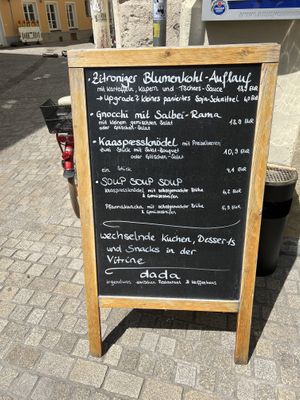 • Zitroniger Blumenkohl-Auflauf
mit Kartoffeln, Kapern und Tschers-Sauce 13,9 EUR
→ Upgrade? kleines paniertes Soja-Schnitzel 4,0 EUR
• Gnocchi mit Salbei-Rama
mit kleinem gemischten Salat 12,9 EUR
oder Gätscher-Salat
• Kaaspressknödel mit Preiselbeeren
zwei Stück mit Salat-Bouquet 10,9 EUR
oder Gätscher-Salat
ein Stück 7,9 EUR
• SOUP SOUP SOUP
Kaaspressknödel mit selbstgemachter Brühe 6,2 EUR
& Gemüsestreifen
Pfannakuacha mit selbstgemachter Brühe 5,9 EUR
& Gemüsestreifen
wechselnde Kuchen, Desserts
und Snacks in der
Vitrine
dada
irgendwas zwischen Restaurant & Kaffeehaus